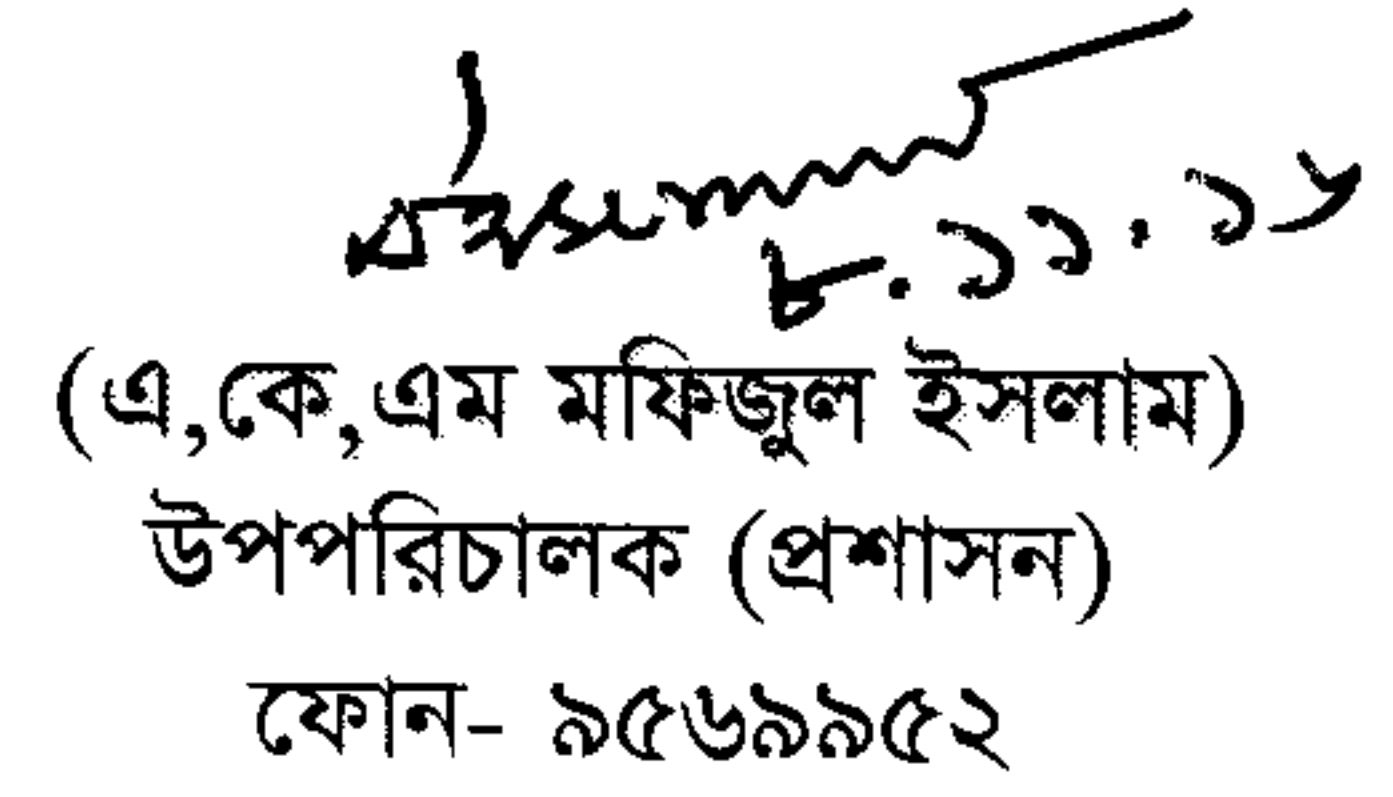 ৮.১১.১৮
(এ,কে,এম মফিজুল ইসলাম)
উপপরিচালক (প্রশাসন)
ফোন- ৯৫৬৯৯৫২